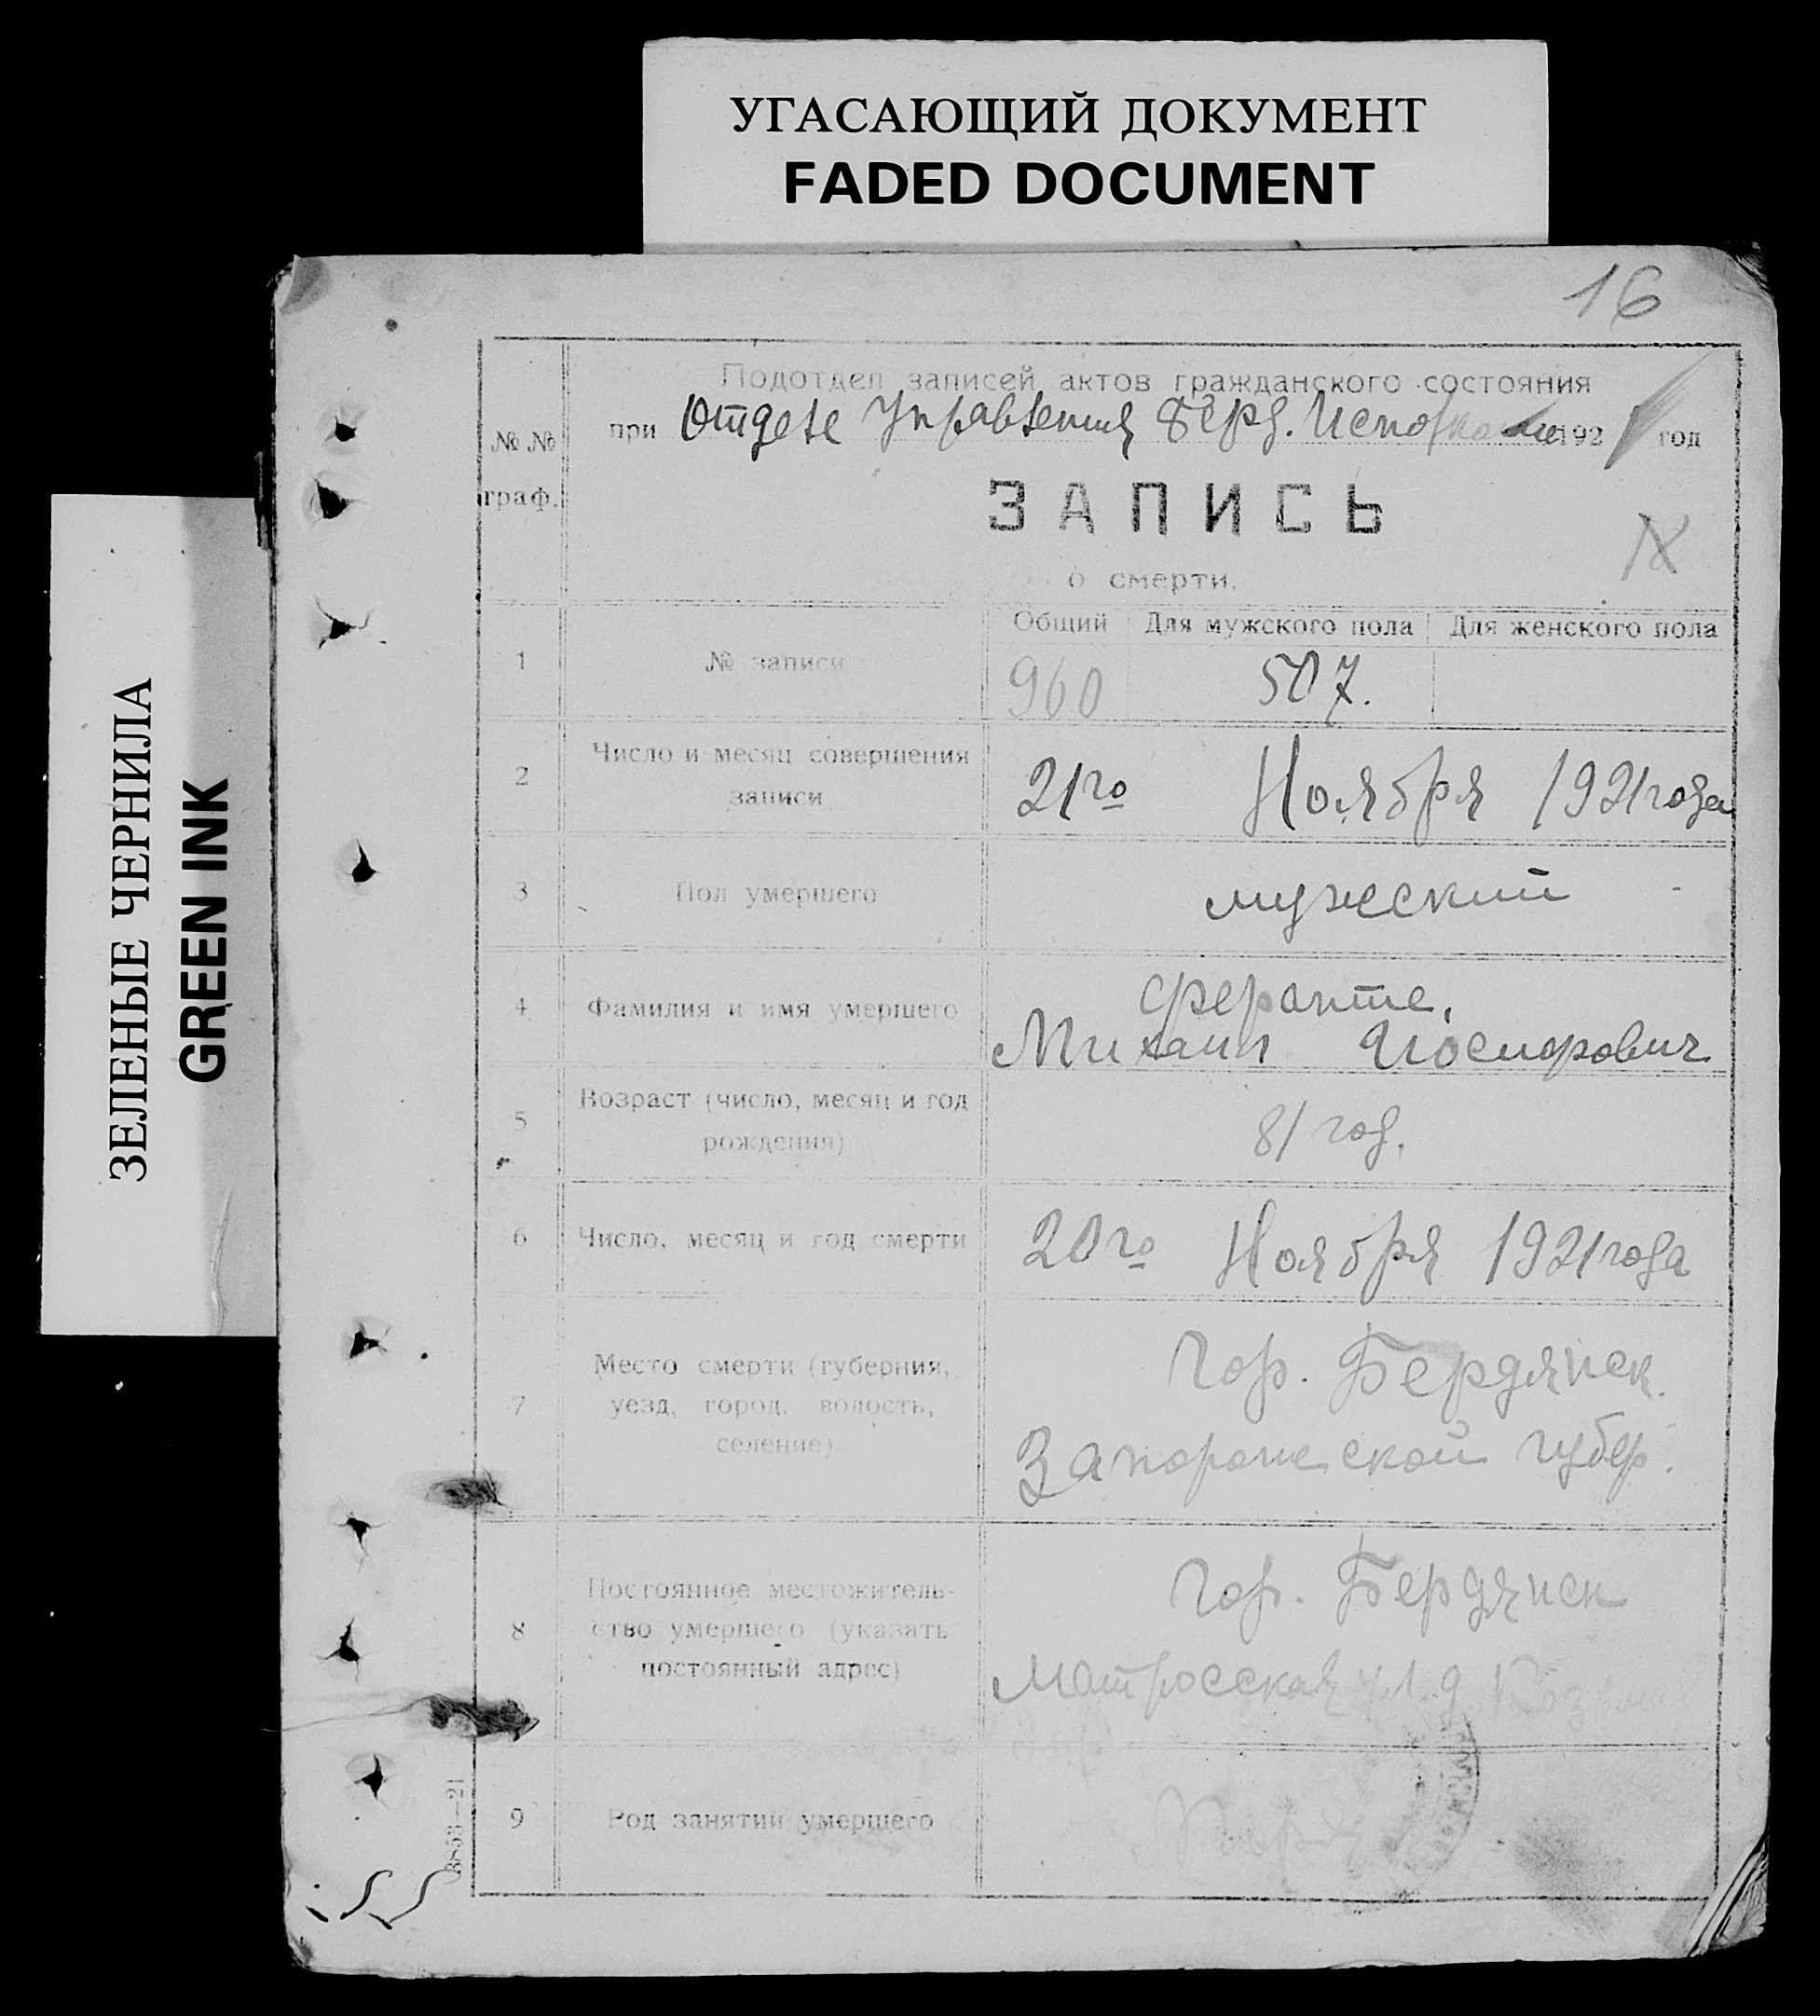 УГАСАЮЩИЙ ДОКУМЕНТ
FADED DOCUMENT
ЗЕЛЕНЫЕ ЧЕРНИЛА
GREEN INK
16
№ №
граф.
Подотдел записей актов гражданского состояния
при Отделе Управления Берд. Исполкома 1921 год
ЗАПИСЬ
о смерти.
Общий Для мужского пола Для женского пола
1 № записи 960 507.
2 Число и месяц совершения
записи
21го Ноября 1921 года
3 Пол умершего мужеский
4 Фамилия и имя умершего
Феранте,
Михаил Иосифович
5 Возраст (число, месяц и год
рождения)
81 год.
6 Число, месяц и год смерти 20го Ноября 1921 года
7 Место смерти (губерния,
уезд, город, волость,
селение)
Гор. Бердянск.
Запорожской губер.
8 Постоянное местожитель-
ство умершего (указать
постоянный адрес)
Гор. Бердянск
Матросская ул. д.
9 Род занятий умершего
В853—21